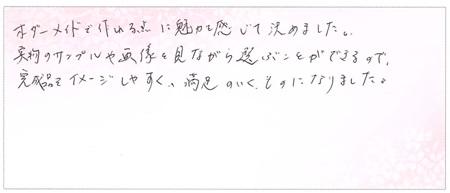 オーダーメイドで作れる点に魅力を感じて決めました。
実物のサンプルや画像を見ながら選ぶことができるので、
完成品をイメージしやすく、満足のいくものになりました。